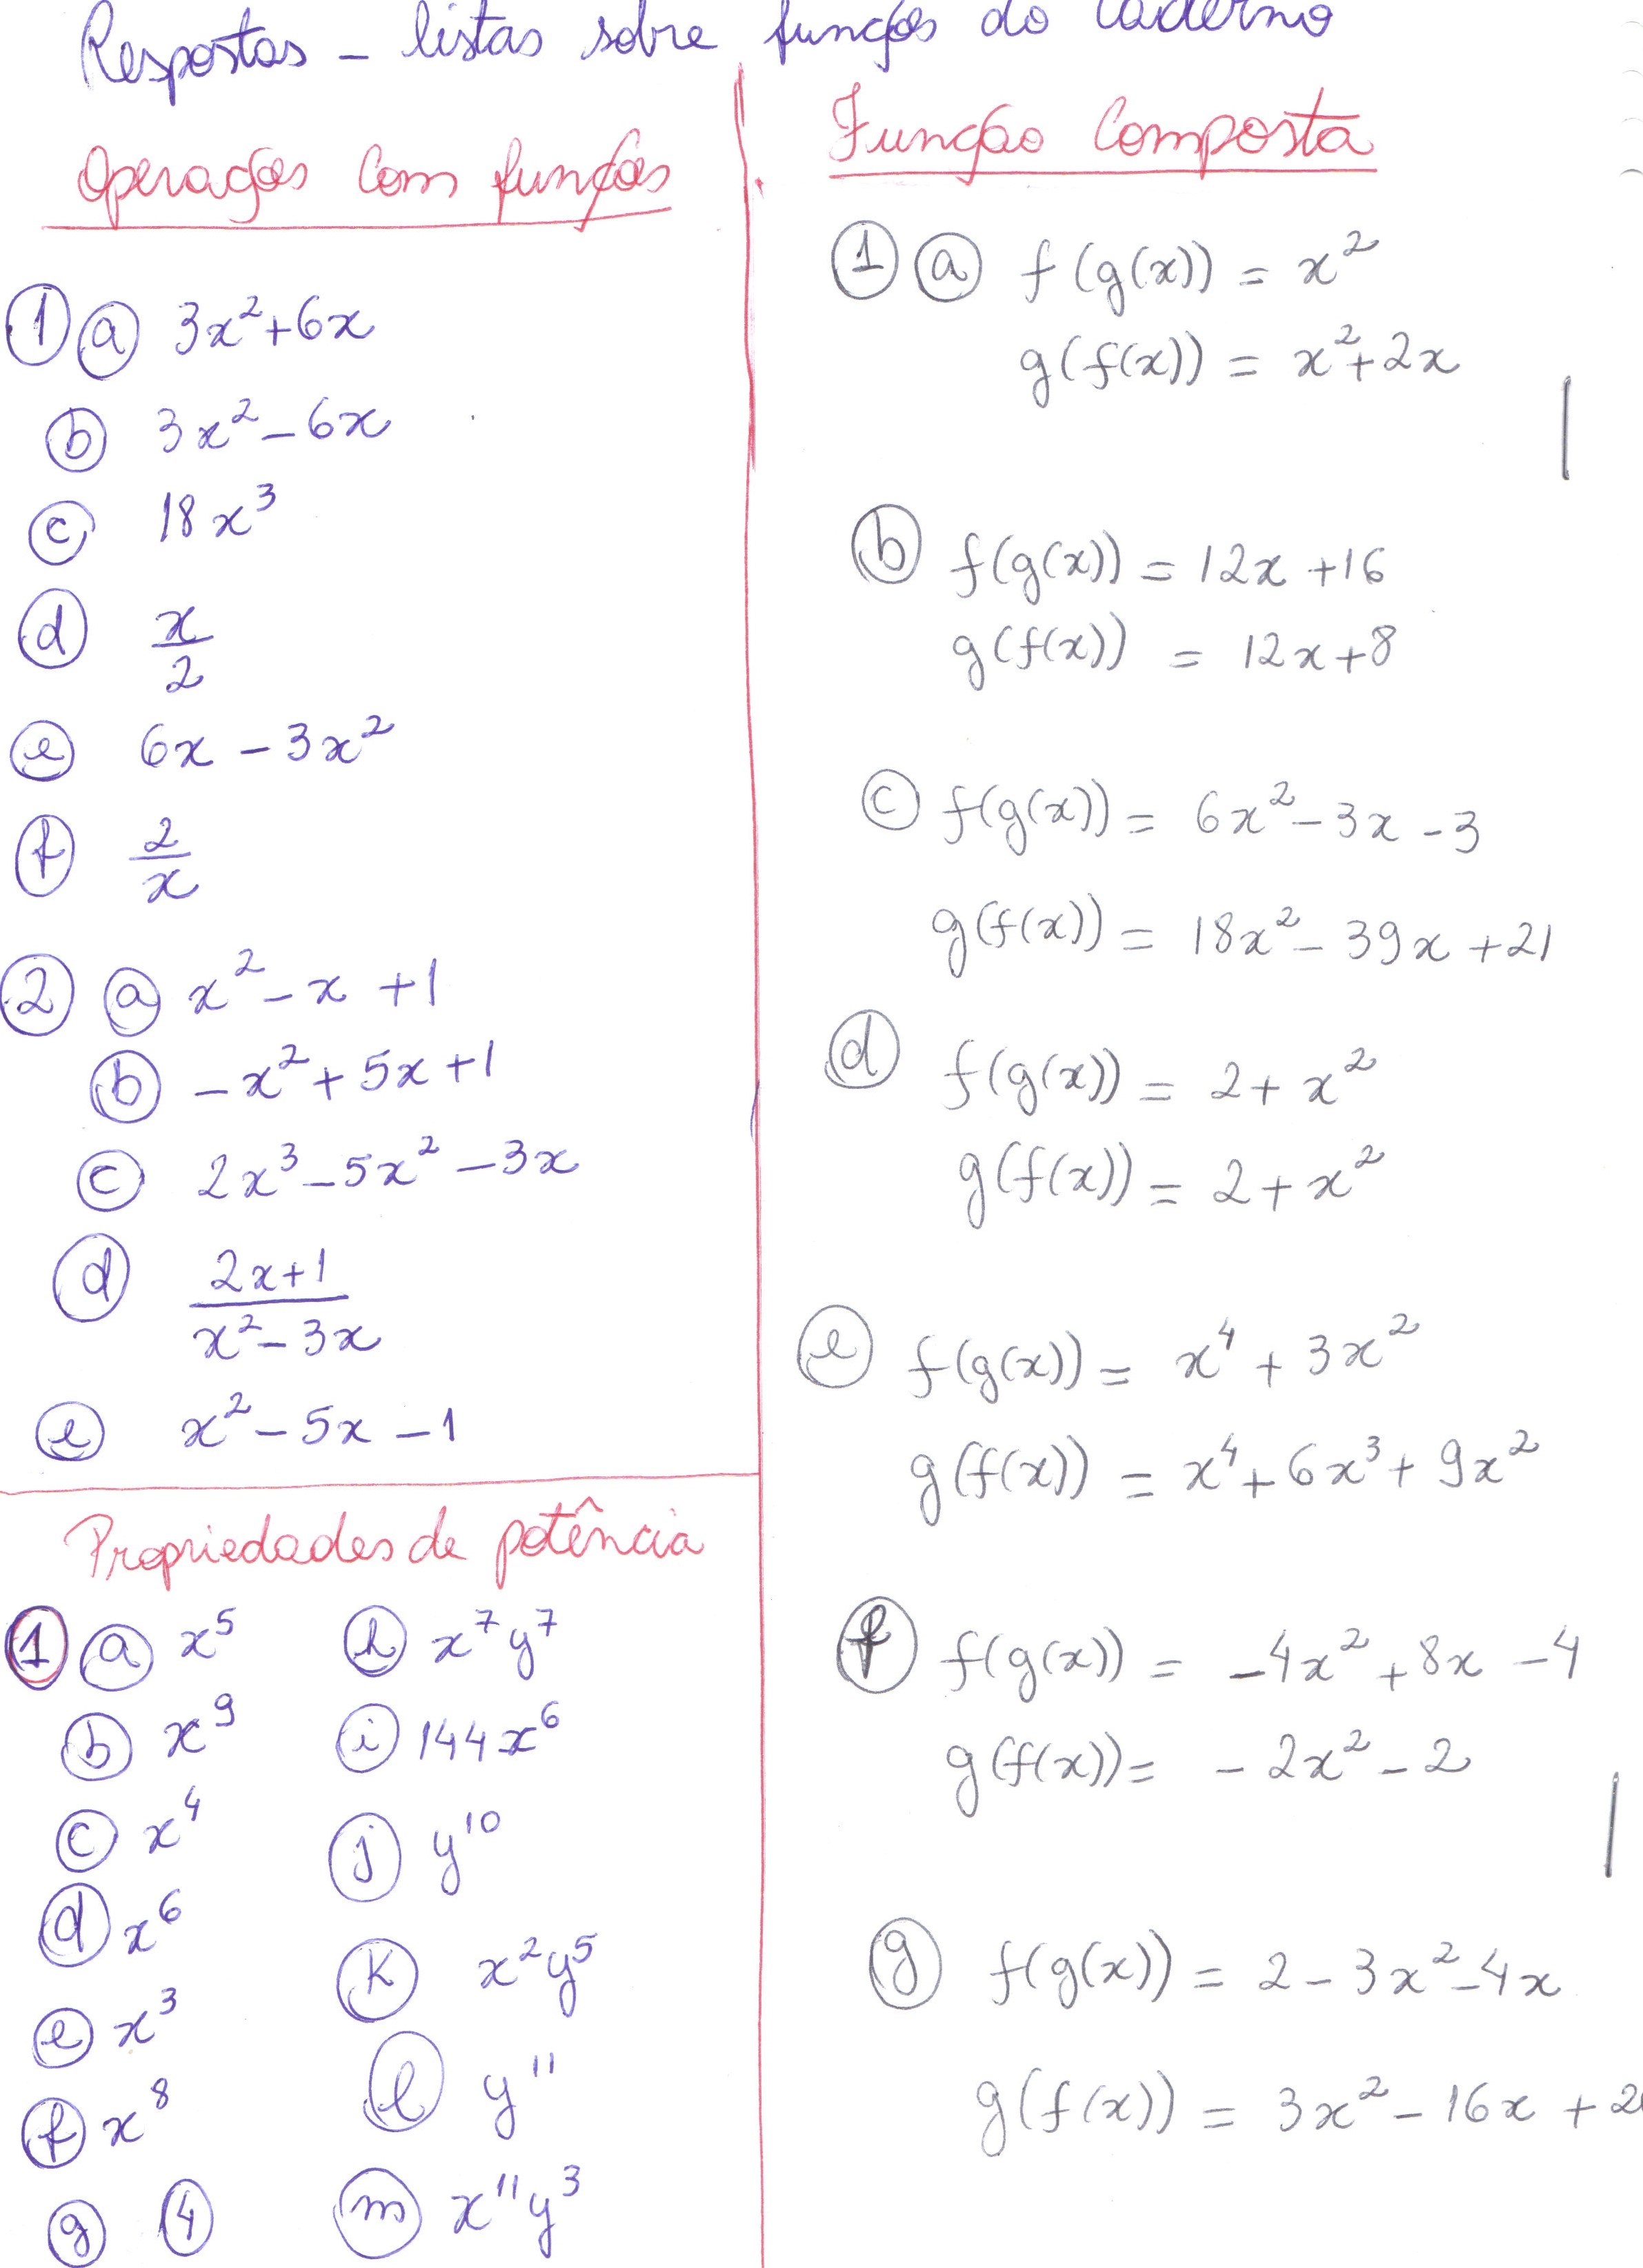 Respostas - listas sobre funções do caderno
Operações com funções
1 a 3x²+6x
b 3x²-6x
c 18x³
d x/2
e 6x - 3x²
f 2/x
2 a x² - x + 1
b -x² + 5x + 1
c 2x³ - 5x² - 3x
d (2x+1)/(x²-3x)
e x² - 5x - 1
Propriedades de potência
1 a x⁵
b x⁹
c x⁴
d x⁶
e x³
f x⁸
g 4
h x⁷y⁷
i 144x⁶
j y¹⁰
k x²y⁵
l y¹¹
m x¹¹y³
Função Composta
1 a f(g(x)) = x²
g(f(x)) = x²+2x
b f(g(x)) = 12x + 16
g(f(x)) = 12x + 8
c f(g(x)) = 6x² - 3x - 3
g(f(x)) = 18x² - 39x + 21
d f(g(x)) = 2 + x²
g(f(x)) = 2 + x²
e f(g(x)) = x⁴ + 3x²
g(f(x)) = x⁴ + 6x³ + 9x²
f f(g(x)) = -4x² + 8x - 4
g(f(x)) = -2x² - 2
g f(g(x)) = 2 - 3x² - 4x
g(f(x)) = 3x² - 16x +